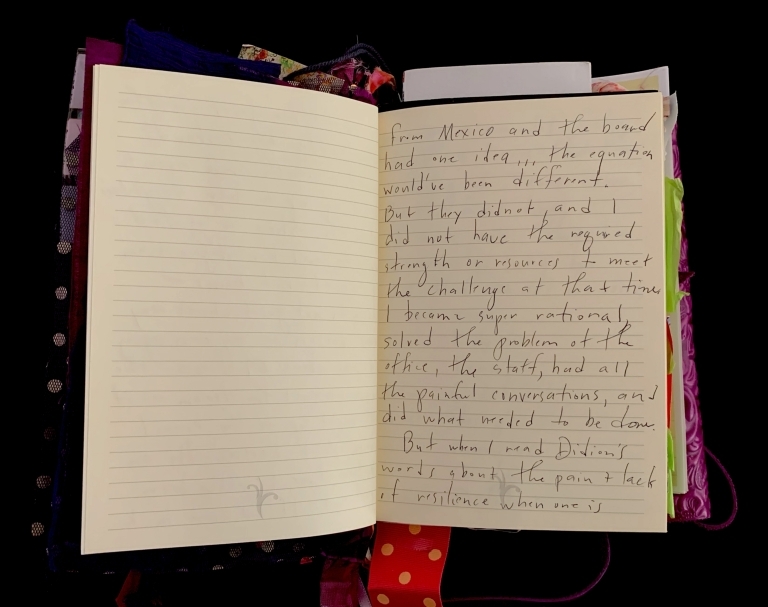 from Mexico and the board
had one idea,,, the equation
would've been different.
But they didnot, and I
did not have the required
strength or resources to meet
the challenge at that time
I became super rational,
solved the problem of the
office, the staff, had all
the painful conversations, and
did what needed to be done.
But when I read Didion's
words about the pain + lack
of resilience when one is